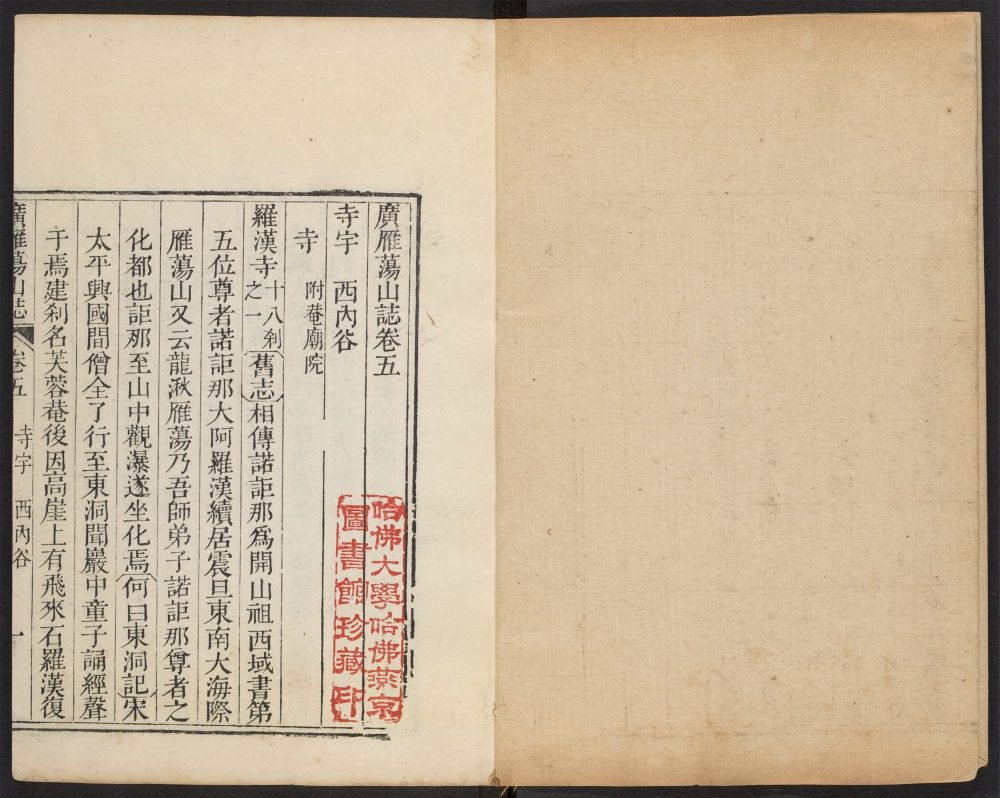 廣雁蕩山誌卷五
寺宇 西內谷
寺 附菴廟院
羅漢寺 十八刹之一 舊志 相傳諾詎那爲開山祖西域書第
五位尊者諾詎那大阿羅漢續居震旦東南大海際
雁蕩山又云龍湫雁蕩乃吾師弟子諾詎那尊者之
化都也詎那至山中觀瀑遂坐化焉 何白東洞記 宋
太平興國間僧全了行至東洞聞巖中童子誦經聲
于焉建刹名芙蓉菴後因高崖上有飛來石羅漢復
廣雁蕩山誌 卷五 寺宇 西內谷 一
哈佛大學哈佛燕京
圖書館珍藏印